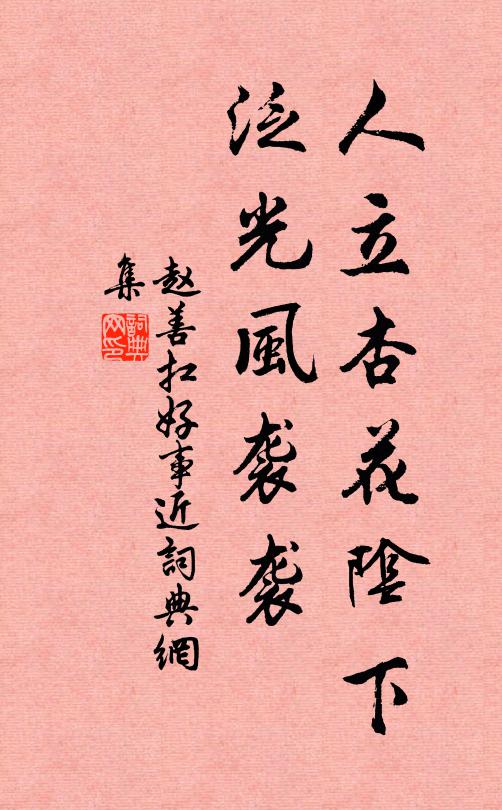 人立杏花陰下
泛光風袭袭
赵善扛好事近詞典網
集
詞典
网印